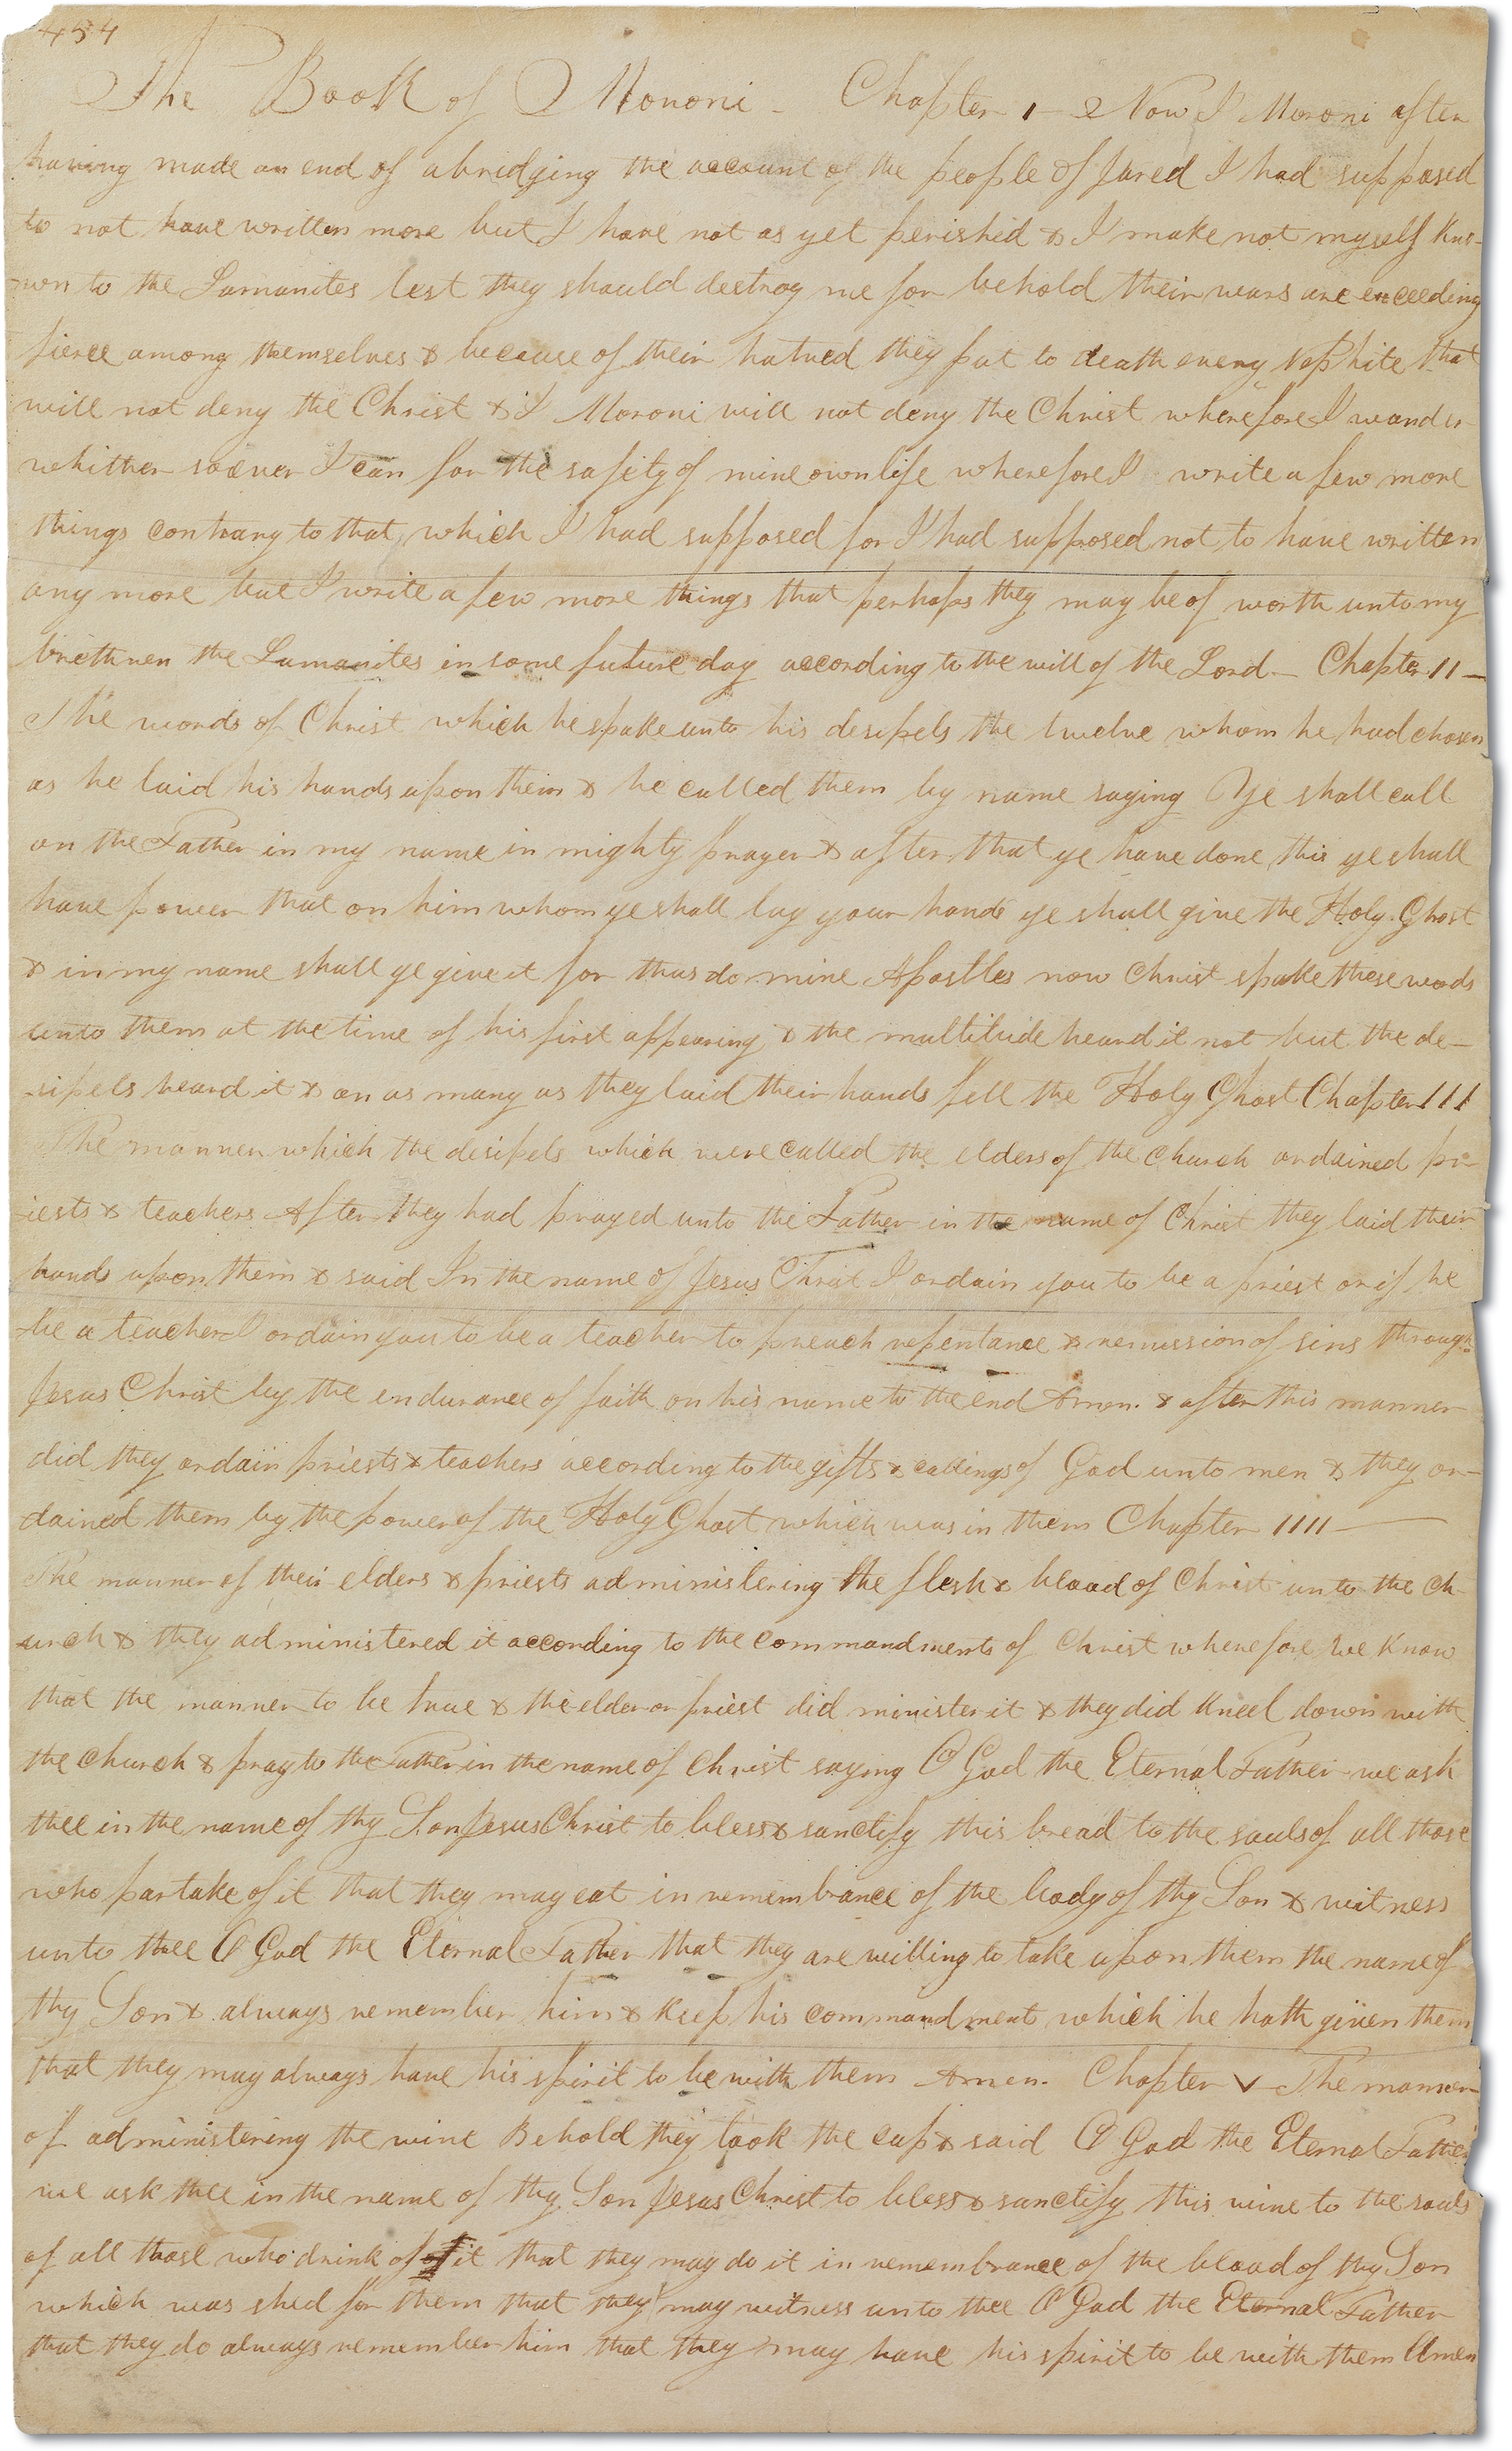 454
The Book of Moroni - Chapter 1 - Now I Moroni after
having made an end of abridging the account of the people of Jared I had supposed
to not have written more but I have not as yet perished & I make not myself kno-
-wn to the Lamanites lest they should destroy me for behold their wars are exceeding
fierce among themselves & because of their hatred they put to death every Nephite that
will not deny the Christ & I Moroni will not deny the Christ wherefore I wander
whither soever I can for the safety of mine own life wherefore I write a few more
things contrary to that which I had supposed for I had supposed not to have written
any more but I write a few more things that perhaps they may be of worth unto my
brethren the Lamanites in some future day according to the will of the Lord - Chapter 11 -
The words of Christ which he spake unto his desipels the twelve whom he had chosen
as he laid his hands upon them & he called them by name saying Ye shall call
on the Father in my name in mighty prayer & after that ye have done this ye shall
have power that on him whom ye shall lay your hands ye shall give the Holy Ghost
& in my name shall ye give it for thus do mine Apostles now Christ spake these words
unto them at the time of his first appearing & the multitude heard it not but the de-
-sipels heard it & on as many as they laid their hands fell the Holy Ghost Chapter 111
The manner which the desipels which were called the elders of the church ordained pr-
-iests & teachers After they had prayed unto the Father in the name of Christ they laid their
hands upon them & said In the name of Jesus Christ I ordain you to be a priest or if he
be a teacher I ordain you to be a teacher to preach repentance & remission of sins through
Jesus Christ by the endurance of faith on his name to the end Amen. & after this manner
did they ordain priests & teachers according to the gifts & callings of God unto men & they or-
dained them by the power of the Holy Ghost which was in them Chapter 1111 -
The manner of their elders & priests administering the flesh & blood of Christ unto the ch-
-urch & they administered it according to the commandments of Christ wherefore we know
that the manner to be true & the elder or priest did minister it & they did kneel down with
the church & pray to the Father in the name of Christ saying O God the Eternal Father we ask
thee in the name of thy Son Jesus Christ to bless & sanctify this bread to the souls of all those
who partake of it that they may eat in remembrance of the body of thy Son & witness
unto thee O God the Eternal Father that they are willing to take upon them the name of
thy Son & always remember him & keep his commandments which he hath given them
that they may always have his spirit to be with them Amen. Chapter V - The manner
of administering the wine Behold they took the cup & said O God the Eternal Father
we ask thee in the name of thy Son Jesus Christ to bless & sanctify this wine to the souls
of all those who drink of it that they may do it in remembrance of the blood of thy Son
which was shed for them that they may witness unto thee O God the Eternal Father
that they do always remember him that they may have his spirit to be with them Amen